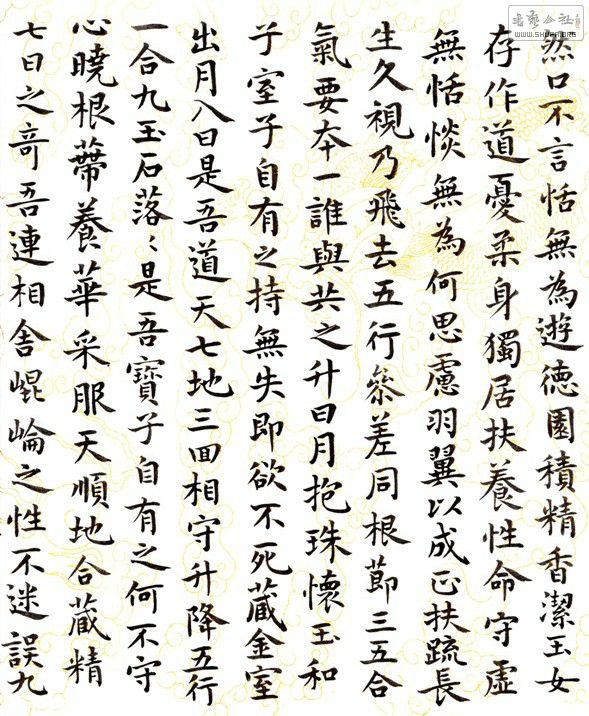 然口不言恬無為遊德園積精香潔玉女
存作道憂柔身獨居扶養性命守虛
無恬惔無為何思慮羽翼以成正扶疏長
生久視乃飛去五行叅差同根節三五合
氣要本一誰與共之升日月抱珠懷玉和
子室子自有之持無失即欲不死藏金室
出月入日是吾道天七地三回相守升降五行
一合九玉石落〻是吾寶子自有之何不守
心曉根蔕養華采服天順地合藏精
七日之奇吾連相舍崐崘之性不迷誤九
書藝公社
WWW.SHUFA.ORG